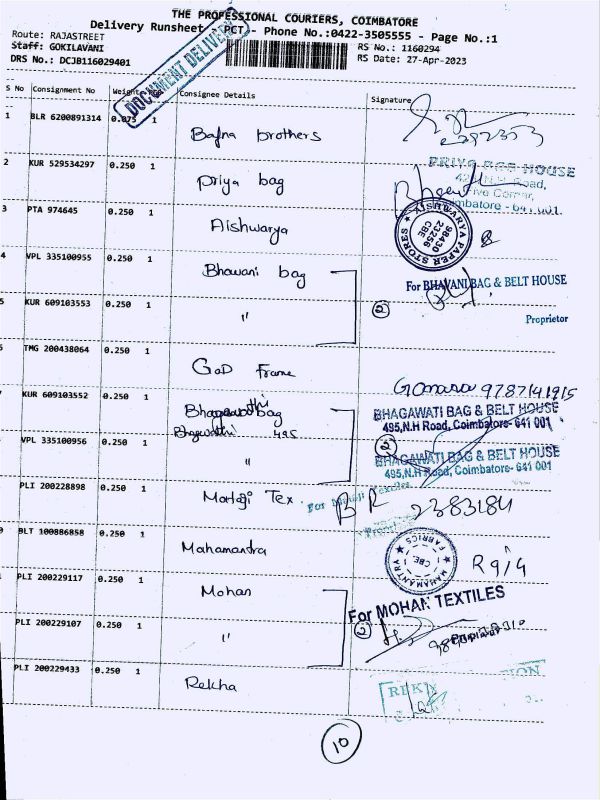 THE PROFESSIONAL COURIERS, COIMBATORE
Delivery Runsheet PCT - Phone No.:0422-3505555 - Page No.:1
Route: RAJASTREET
Staff: GOKILAVANI
DRS No.: DCJB116029401
RS No.: 1160294
RS Date: 27-Apr-2023
DOCUMENT DELIVERY
S No Consignment No Weight Consignee Details Signature
1 BLR 6200891314 0.075 1 Bafna brothers
2 KUR 529534297 0.250 1 Priya bag
PRIYA BAG HOUSE
Road,
Corner,
3 PTA 974645 0.250 1 Aishwarya
AISHWARYA PAPER STORES
98430
23256
CBE
4 VPL 335100955 0.250 1 Bhawani bag
For BHAVANI BAG & BELT HOUSE
5 KUR 609103553 0.250 1 "
2
Proprietor
TMG 200438064 0.250 1 GOD Frame
9787141915
KUR 609103552 0.250 1 Bhagawathi bag
Bhagwathi 495
BHAGAWATI BAG & BELT HOUSE
495,N.H Road, Coimbatore- 641 001
VPL 335100956 0.250 1 "
2
BHAGAWATI BAG & BELT HOUSE
495,N.H Road, Coimbatore- 641 001
PLI 200228898 0.250 1 Tex
BR 2383184
BLT 100886858 0.250 1 Mahamantra
MAHAMANTRA FABRICS
CBE. 1
PLI 200229117 0.250 1 Mohan
For MOHAN TEXTILES
PLI 200229107 0.250 1 "
2
PLI 200229433 0.250 1 Rekha
10